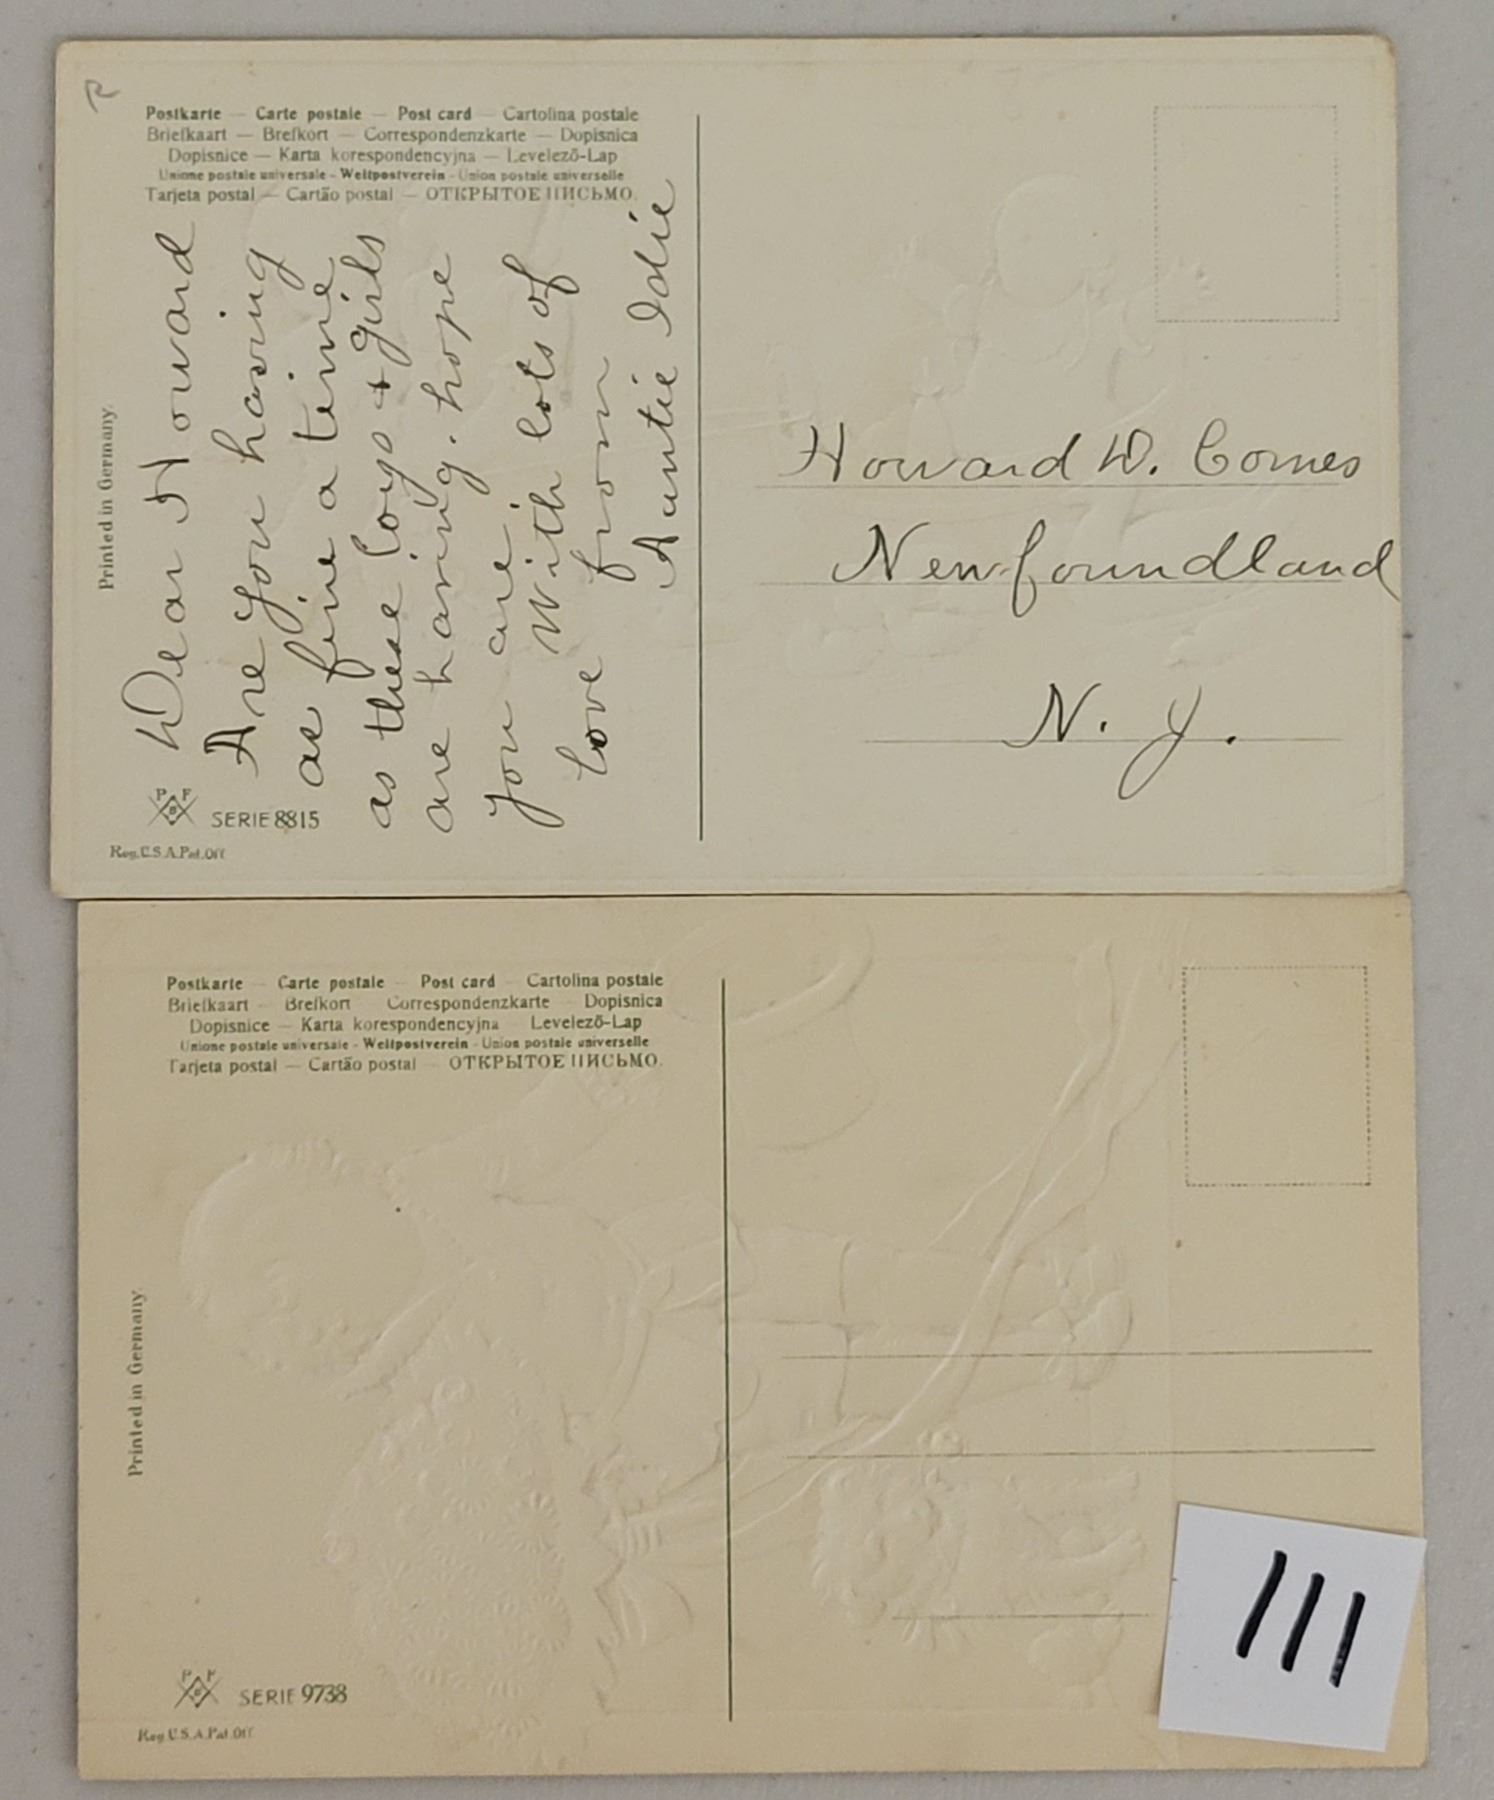 R
Postkarte — Carte postale — Post card — Cartolina postale
Briefkaart — Brefkort — Correspondenzkarte — Dopisnica
Dopisnice — Karta korespondencyjna — Levelező-Lap
Unione postale universale - Weltpostverein - Union postale universelle
Tarjeta postal — Cartão postal — ОТКРЫТОЕ ПИСЬМО.
Printed in Germany.
Dear Howard
Are you having
as fine a time
as these boys + girls
are having. hope
you are.
With lots of
love from
Auntie Idie
P F B
SERIE 8815
Reg. U.S.A. Pat. Off
Howard W. Comes
Newfoundland
N. J.
Postkarte — Carte postale — Post card — Cartolina postale
Briefkaart — Brefkort — Correspondenzkarte — Dopisnica
Dopisnice — Karta korespondencyjna — Levelező-Lap
Unione postale universale - Weltpostverein - Union postale universelle
Tarjeta postal — Cartão postal — ОТКРЫТОЕ ПИСЬМО.
Printed in Germany.
P F B
SERIE 9738
Reg. U.S.A. Pat. Off
111